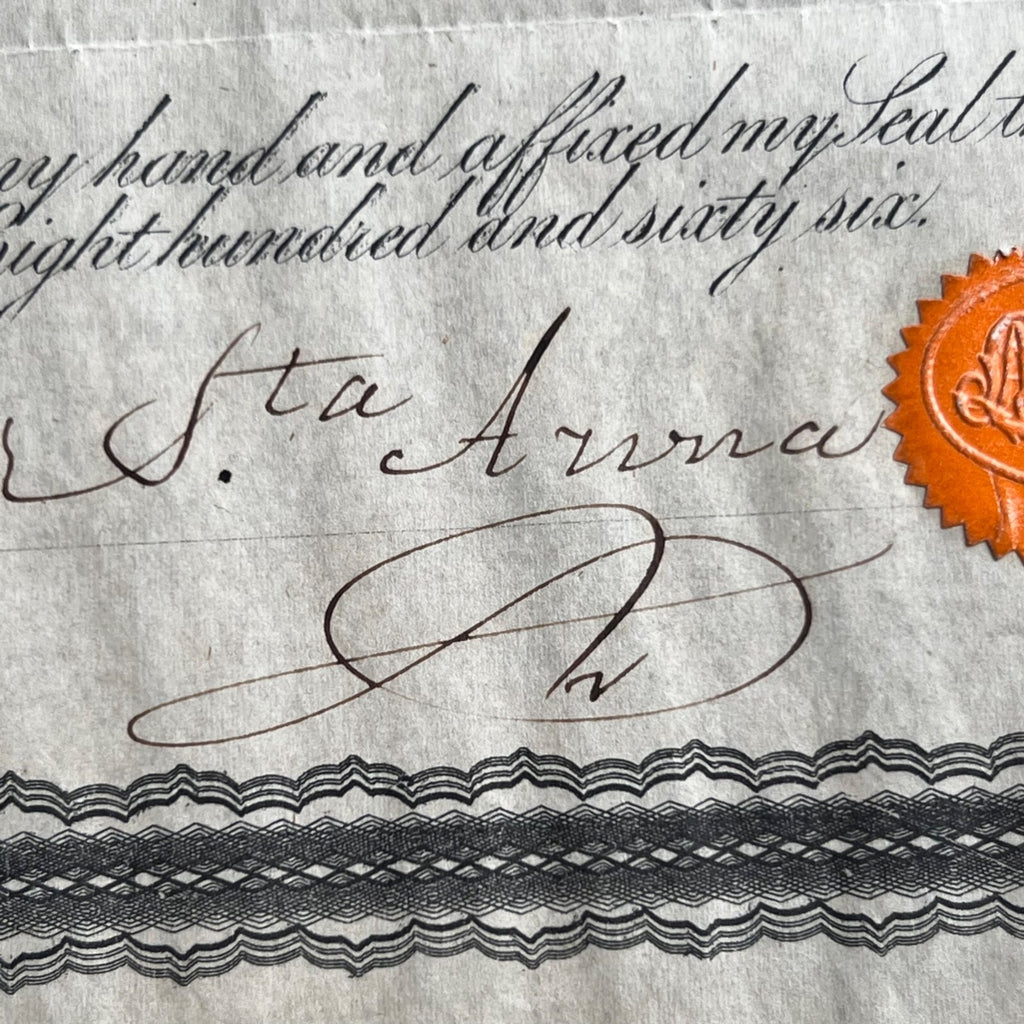 my hand and affixed my Seal
Eight hundred and sixty six.
S.ta Anna